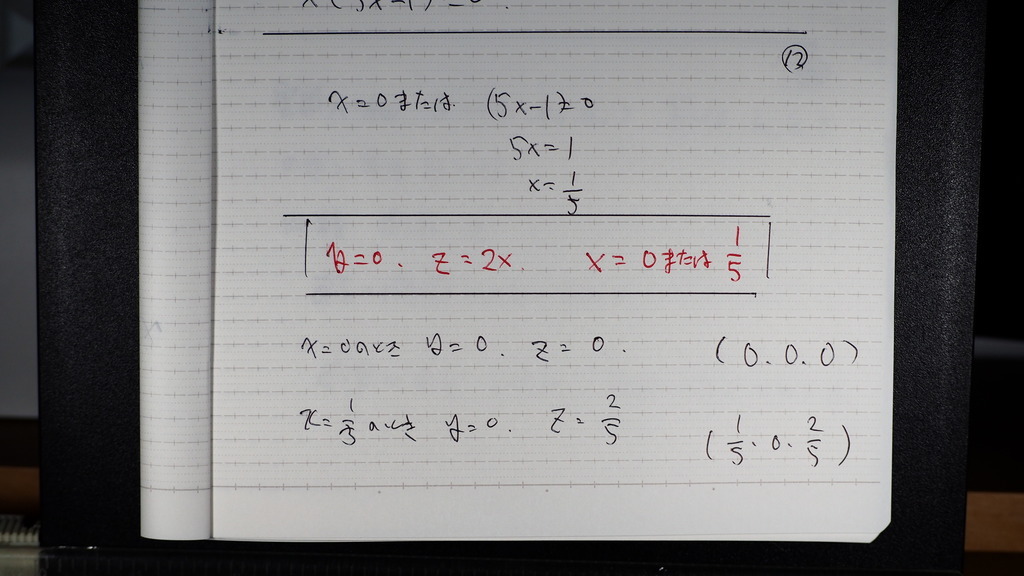 x(5x-1)=0.
⑫
x=0または (5x-1)=0
5x=1
x=1/5
y=0. z=2x. x=0または 1/5
x=0のとき y=0. z=0. (0.0.0)
x=1/5のとき y=0. z=2/5 (1/5.0.2/5)